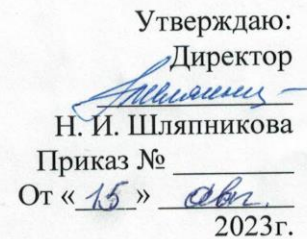 Утверждаю:
Директор
Н. И. Шляпникова
Приказ № ________
От «15» авг.
2023г.